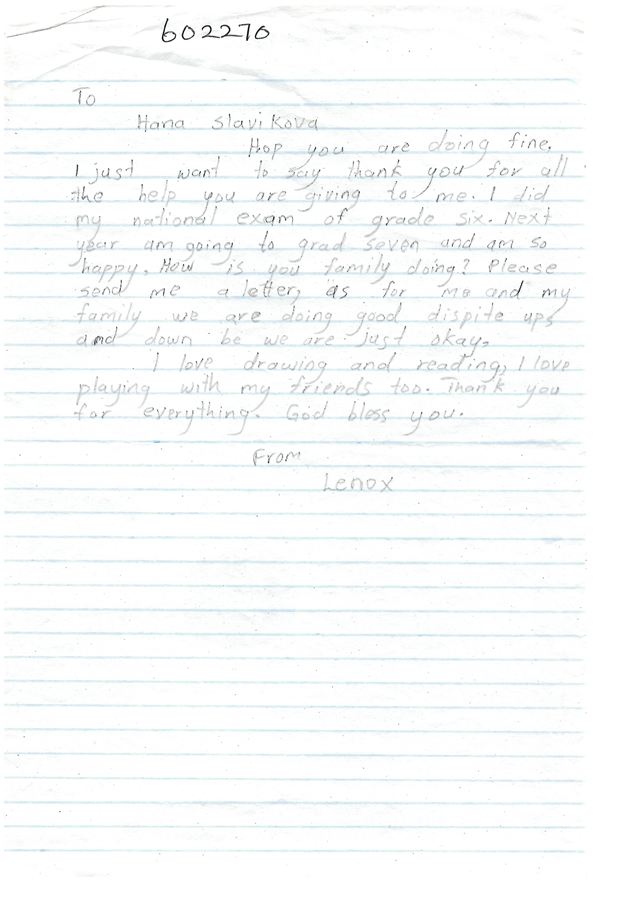 602270
To
Hana Slavikova
Hop you are doing fine,
I just want to say thank you for all
the help you are giving to me. I did
my national exam of grade six. Next
year am going to grad seven and am so
happy. How is you family doing? Please
send me a letter, as for me and my
family we are doing good dispite ups
and down be we are just okay,
I love drawing and reading, I love
playing with my friends too. Thank you
for everything. God bless you.
From
Lenox